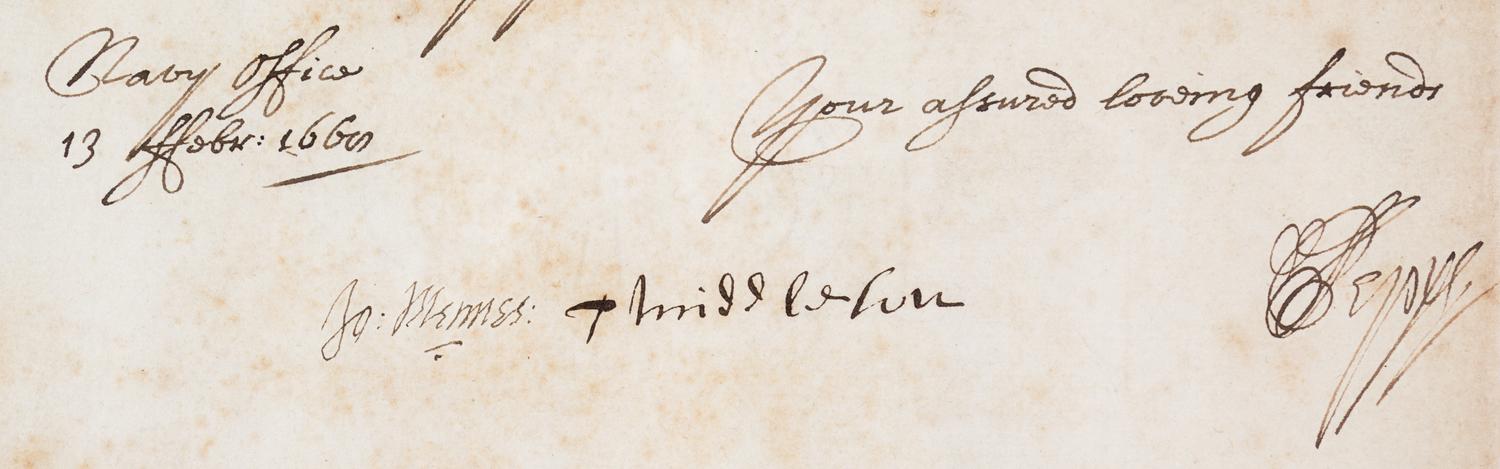 Navy Office
13 ffebr: 1668
Your assured loveing friends
Jo: Mennes:
T Middleton
SPepys